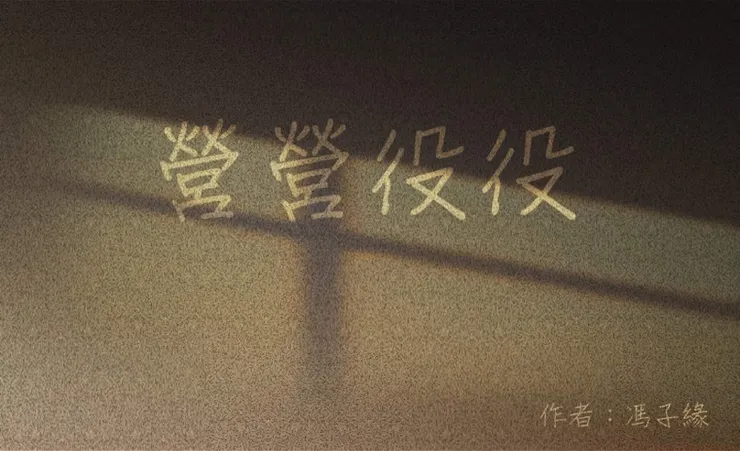 營營役役
作者：馮子緣